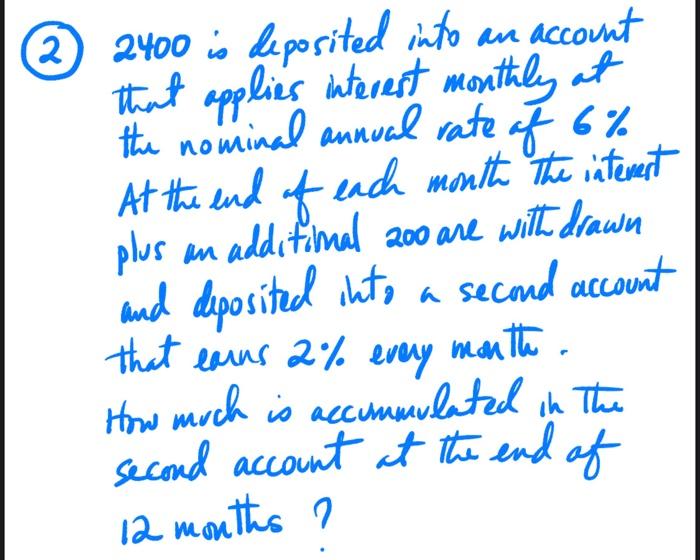 ② 2400 is deposited into an account
that applies interest monthly at
the nominal annual rate of 6%
At the end of each month the interest
plus an additional 200 are withdrawn
and deposited into a second account
that earns 2% every month.
How much is accummulated in the
second account at the end of
12 months ?